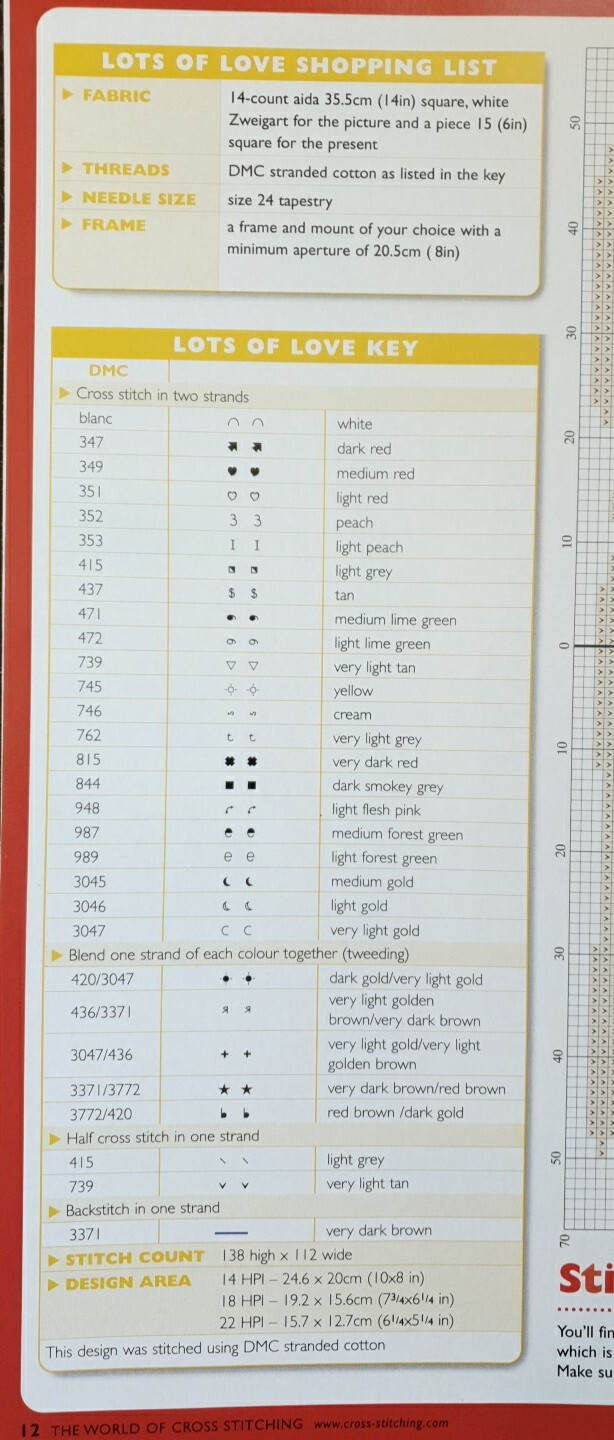 LOTS OF LOVE SHOPPING LIST
▶ FABRIC 14-count aida 35.5cm (14in) square, white
Zweigart for the picture and a piece 15 (6in)
square for the present
▶ THREADS DMC stranded cotton as listed in the key
▶ NEEDLE SIZE size 24 tapestry
▶ FRAME a frame and mount of your choice with a
minimum aperture of 20.5cm ( 8in)
LOTS OF LOVE KEY
DMC
▶ Cross stitch in two strands
blanc white
347 dark red
349 medium red
351 light red
352 3 3 peach
353 I I light peach
415 light grey
437 $ $ tan
471 medium lime green
472 light lime green
739 very light tan
745 yellow
746 cream
762 t t very light grey
815 very dark red
844 dark smokey grey
948 light flesh pink
987 medium forest green
989 e e light forest green
3045 medium gold
3046 light gold
3047 C C very light gold
▶ Blend one strand of each colour together (tweeding)
420/3047 dark gold/very light gold
436/3371 Я Я very light golden
brown/very dark brown
3047/436 + + very light gold/very light
golden brown
3371/3772 ★ ★ very dark brown/red brown
3772/420 red brown /dark gold
▶ Half cross stitch in one strand
415 \ \ light grey
739 v v very light tan
▶ Backstitch in one strand
3371 very dark brown
▶ STITCH COUNT 138 high x 112 wide
▶ DESIGN AREA 14 HPI – 24.6 x 20cm (10x8 in)
18 HPI – 19.2 x 15.6cm (7¾x6¼ in)
22 HPI – 15.7 x 12.7cm (6¼x5¼ in)
This design was stitched using DMC stranded cotton
50
40
30
20
10
0
10
20
30
40
50
70
Sti
You'll fin
which is
Make su
12 THE WORLD OF CROSS STITCHING www.cross-stitching.com